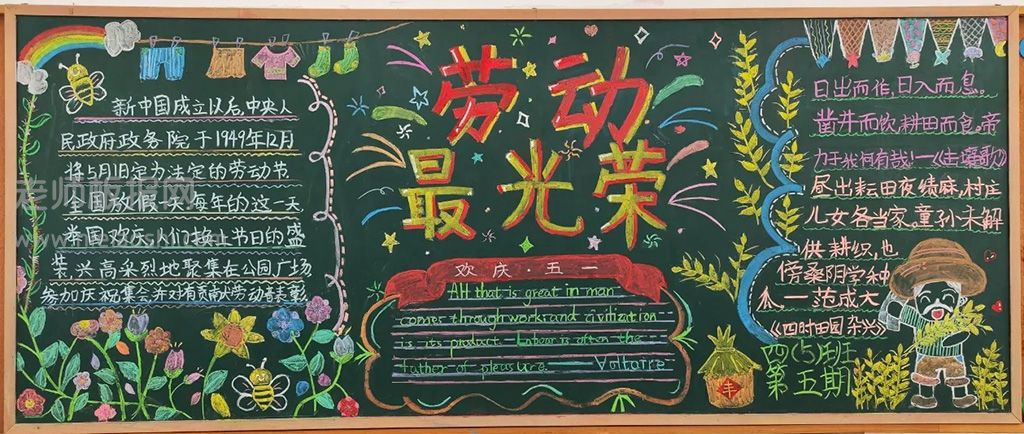 劳动
最光荣
新中国成立以后,中央人
民政府政务院于1949年12月
将5月1日定为法定的劳动节
全国放假一天每年的这一天
举国欢庆,人们换上节日的盛
装,兴高采烈地聚集在公园广场
参加庆祝集会
欢庆·五一
All that is great in man
comes through work and civilization
is its product. Labour is often the
father of pleasure. Voltaire
日出而作,日入而息。
凿井而饮,耕田而食。帝
力于我何有哉!—《击壤歌》
昼出耘田夜绩麻,村庄
儿女各当家。童孙未解
供耕织,也
傍桑阴学种
—范成大
《四时田园杂兴》
丰
四(5)班
第五期
老师板报网